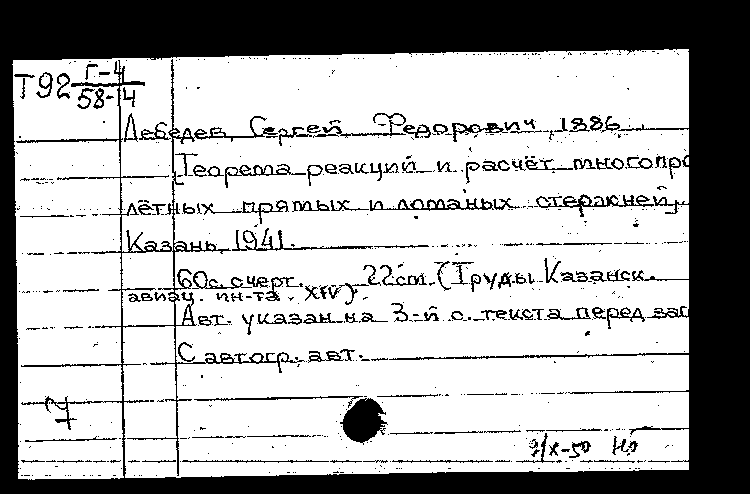 Т92 Г-4
58-14
Лебедев, Сергей Федорович, 1886
[Теорема реакций и расчёт многопро
лётных прямых и ломаных стержней]
Казань, 1941.
60с. счерт. 22см. (Труды Казанск.
авиац. ин-та. XIV).
Авт. указан на 3-й с. текста перед заг
С автогр. авт.
7
9/X-50